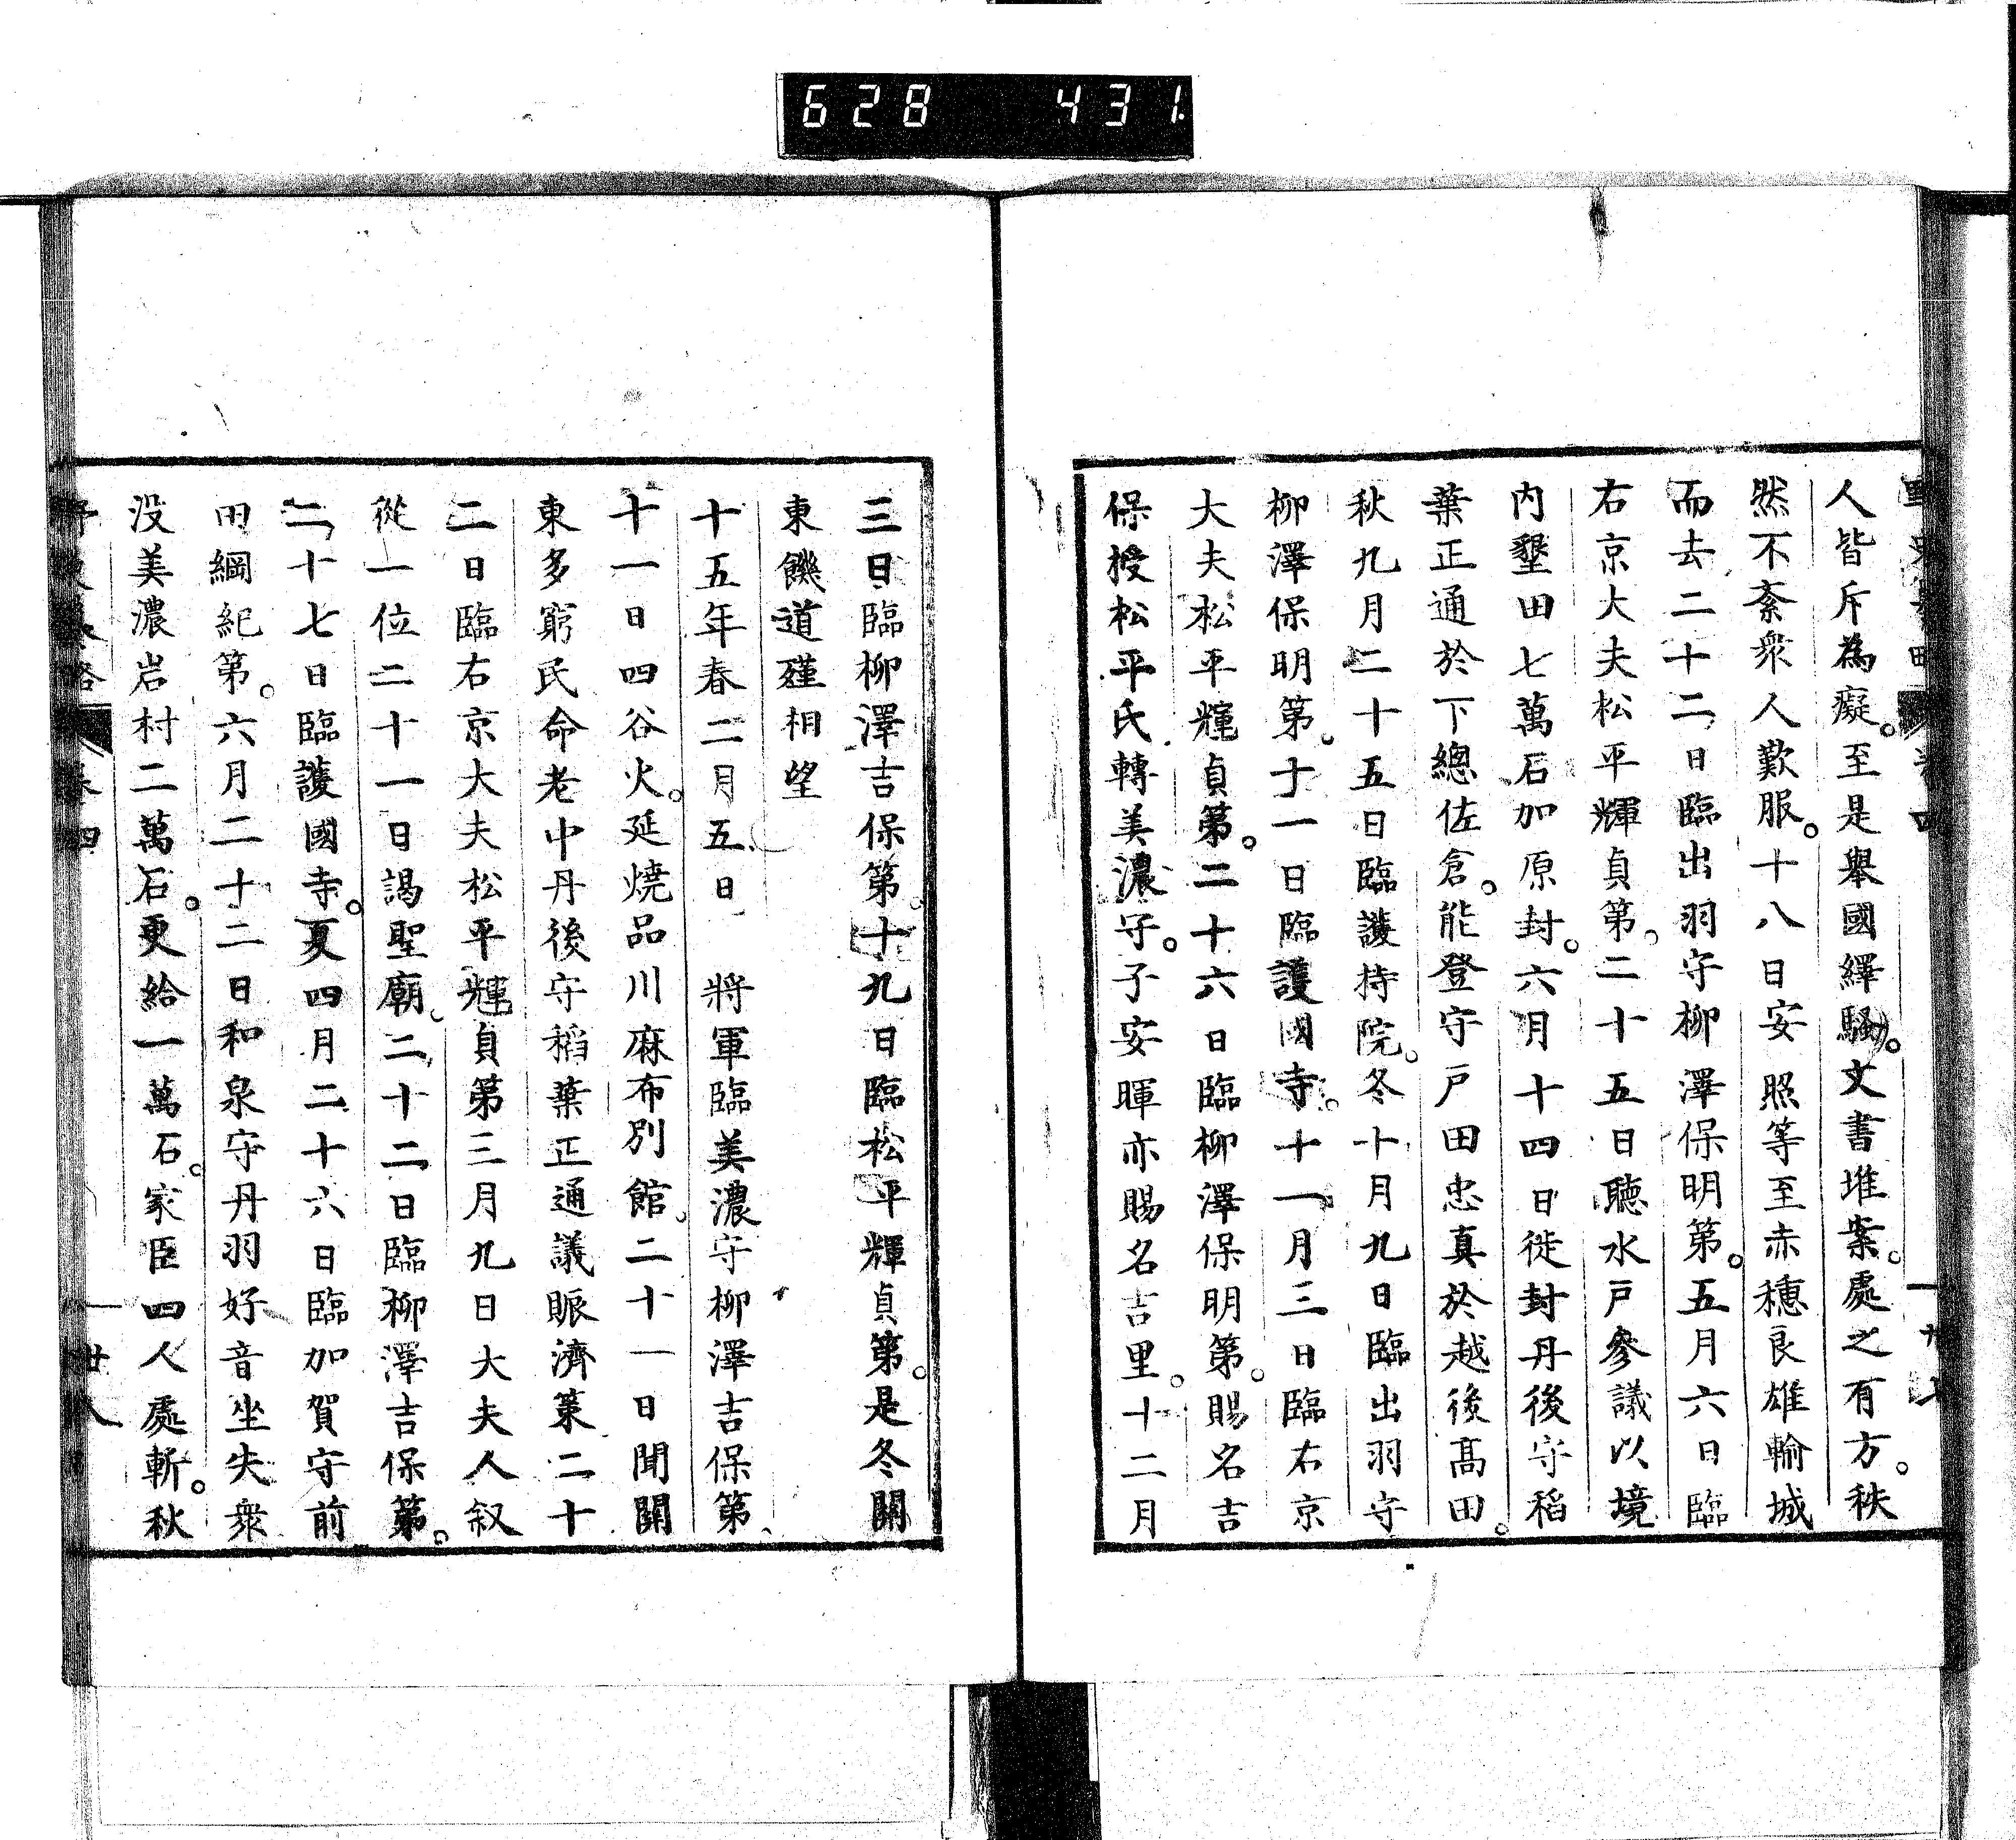 628 431
人皆斥為癡。至是舉國繹騷。文書堆案。處之有方。秩
然不紊衆人歎服。十八日安照等至赤穗良雄輸城
而去二十二日臨出羽守柳澤保明第。五月六日臨
右京大夫松平輝貞第。二十五日聽水戸參議以境
内墾田七萬石加原封。六月十四日徙封丹後守稻
葉正通於下總佐倉。能登守戸田忠真於越後髙田。
秋九月二十五日臨護持院。冬十月九日臨出羽守
柳澤保明第。十一日臨護國寺。十一月三日臨右京
大夫松平輝貞第。二十六日臨柳澤保明第。賜名吉
保授松平氏轉美濃守。子安暉亦賜名吉里。十二月
三日臨柳澤吉保第。十九日臨松平輝貞第。是冬關
東饑道殣相望
十五年春二月五日 將軍臨美濃守柳澤吉保第、
十一日四谷火。延燒品川麻布別館。二十一日聞關
東多窮民命老中丹後守稻葉正通議賑濟策二十
二日臨右京大夫松平輝貞第三月九日大夫人叙
從一位二十一日謁聖廟。二十二日臨柳澤吉保第。
二十七日臨護國寺。夏四月二十六日臨加賀守前
田綱紀第。六月二十二日和泉守丹羽好音坐失衆
没美濃岩村二萬石。更給一萬石。家臣四人處斬。秋
卷四